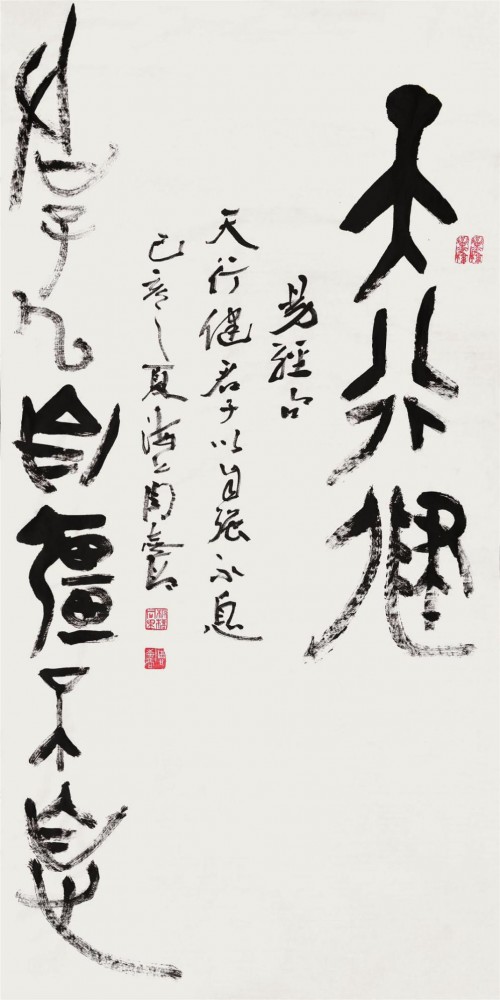 天行健
易經
天行健君子以自强不息
己亥之夏海上周
君子以自彊不息